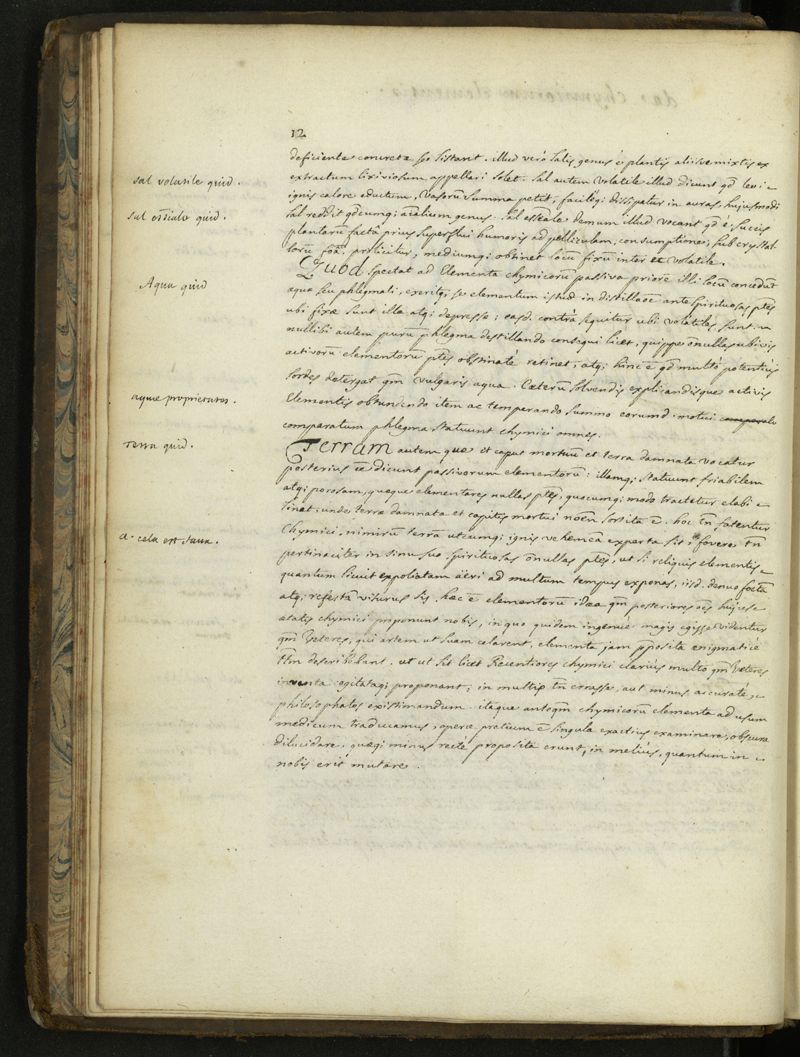 12
deficiente concretæ se sistant. illud verò salis genus è plantis aliisve mixtis ex
extractum lixiviosum appellari solet. sal autem volatile illud dicunt qd levi-
ignis calore eductum, vasorū summa petit, facileq; dissipatur in auras, hujusmodi
sal volatile quid.
sal reddit qdcumq; aīalium genus. sal essēale demum illud vocant qd è succis
sal essēiale quid.
plantarū factâ prius superflui humoris ad pelliculam, consumptione, sub crystal
lorū foâ, prolicitur, mediumq; obtinet locū fixū inter et volatile.
Quod spectat ad Elementa chymicorū passiva priorē illi locū concedūt
aquæ seu phlegmati, exeritq; se elementum istud in distillaōe ante spirituosas ptes
Aqua quid
ubi fixæ sunt illæ atq; depressæ; easd. contrà sequitur ubi volatiles sunt.
nullibi autem purū phlegma destillando consequi licet, quippe ōnullas ubivis
activorū elementorū ptes obstinatè retinet, atq; hinc ē qd multò potentiùs
sordes detergat qm vulgaris aqua. Cæterū solvendis explicandisque activis
Elementis obtundendo item ac temperando summo eorumd. motui comparalo
aquæ proprietates.
comparatum phlegma statuunt chymici omnes.
Terram autem quæ et caput mortuū et terra damnata vocatur
terra quid.
posterius ēe dicunt passivorum elementorū: illamq; statuunt friabilem
atq; porosam, quæque elementares nullas ptes, quocumq; modo tractetur elabi-
sinat, unde terræ damnatæ et capitis mortui nōen sortita ē. hoc tn fatentur
chymici, nimirū terrā utcumq; ignis vehemētiā experta sit fovere tn
pertinaciter in sinu suo spirituosas ōnullas ptes, ut si reliquis elementis-
quantum licuit expoliatam äeri ad multum tempus exponas, iisd. denuo fœtā
atq; refertā visurus sis. hæc ē elementorū idæa qm posteriores oēs hujusce
ætatis chymici proponunt nobis, in quo quidem ingenuè magis egisse videntur
qm Veteres, qui artem ut suam celarent, elementa jam pposita enigmaticè
ttm describebant. ut ut sit licet Recentiores chymici clariùs multò qm Veteres
inventa cogitataq; proponant, in multis tn errasse, aut minus accuratè-
philosophatos existimandum. itaque antequm chymicorū elementa ad usum
medicum traducamus, operæ pretium ē singula exactius examinare, obscura
dilucidare, quæq; minus rectè proposita erunt, in meliùs, quantum in-
nobis erit mutare.